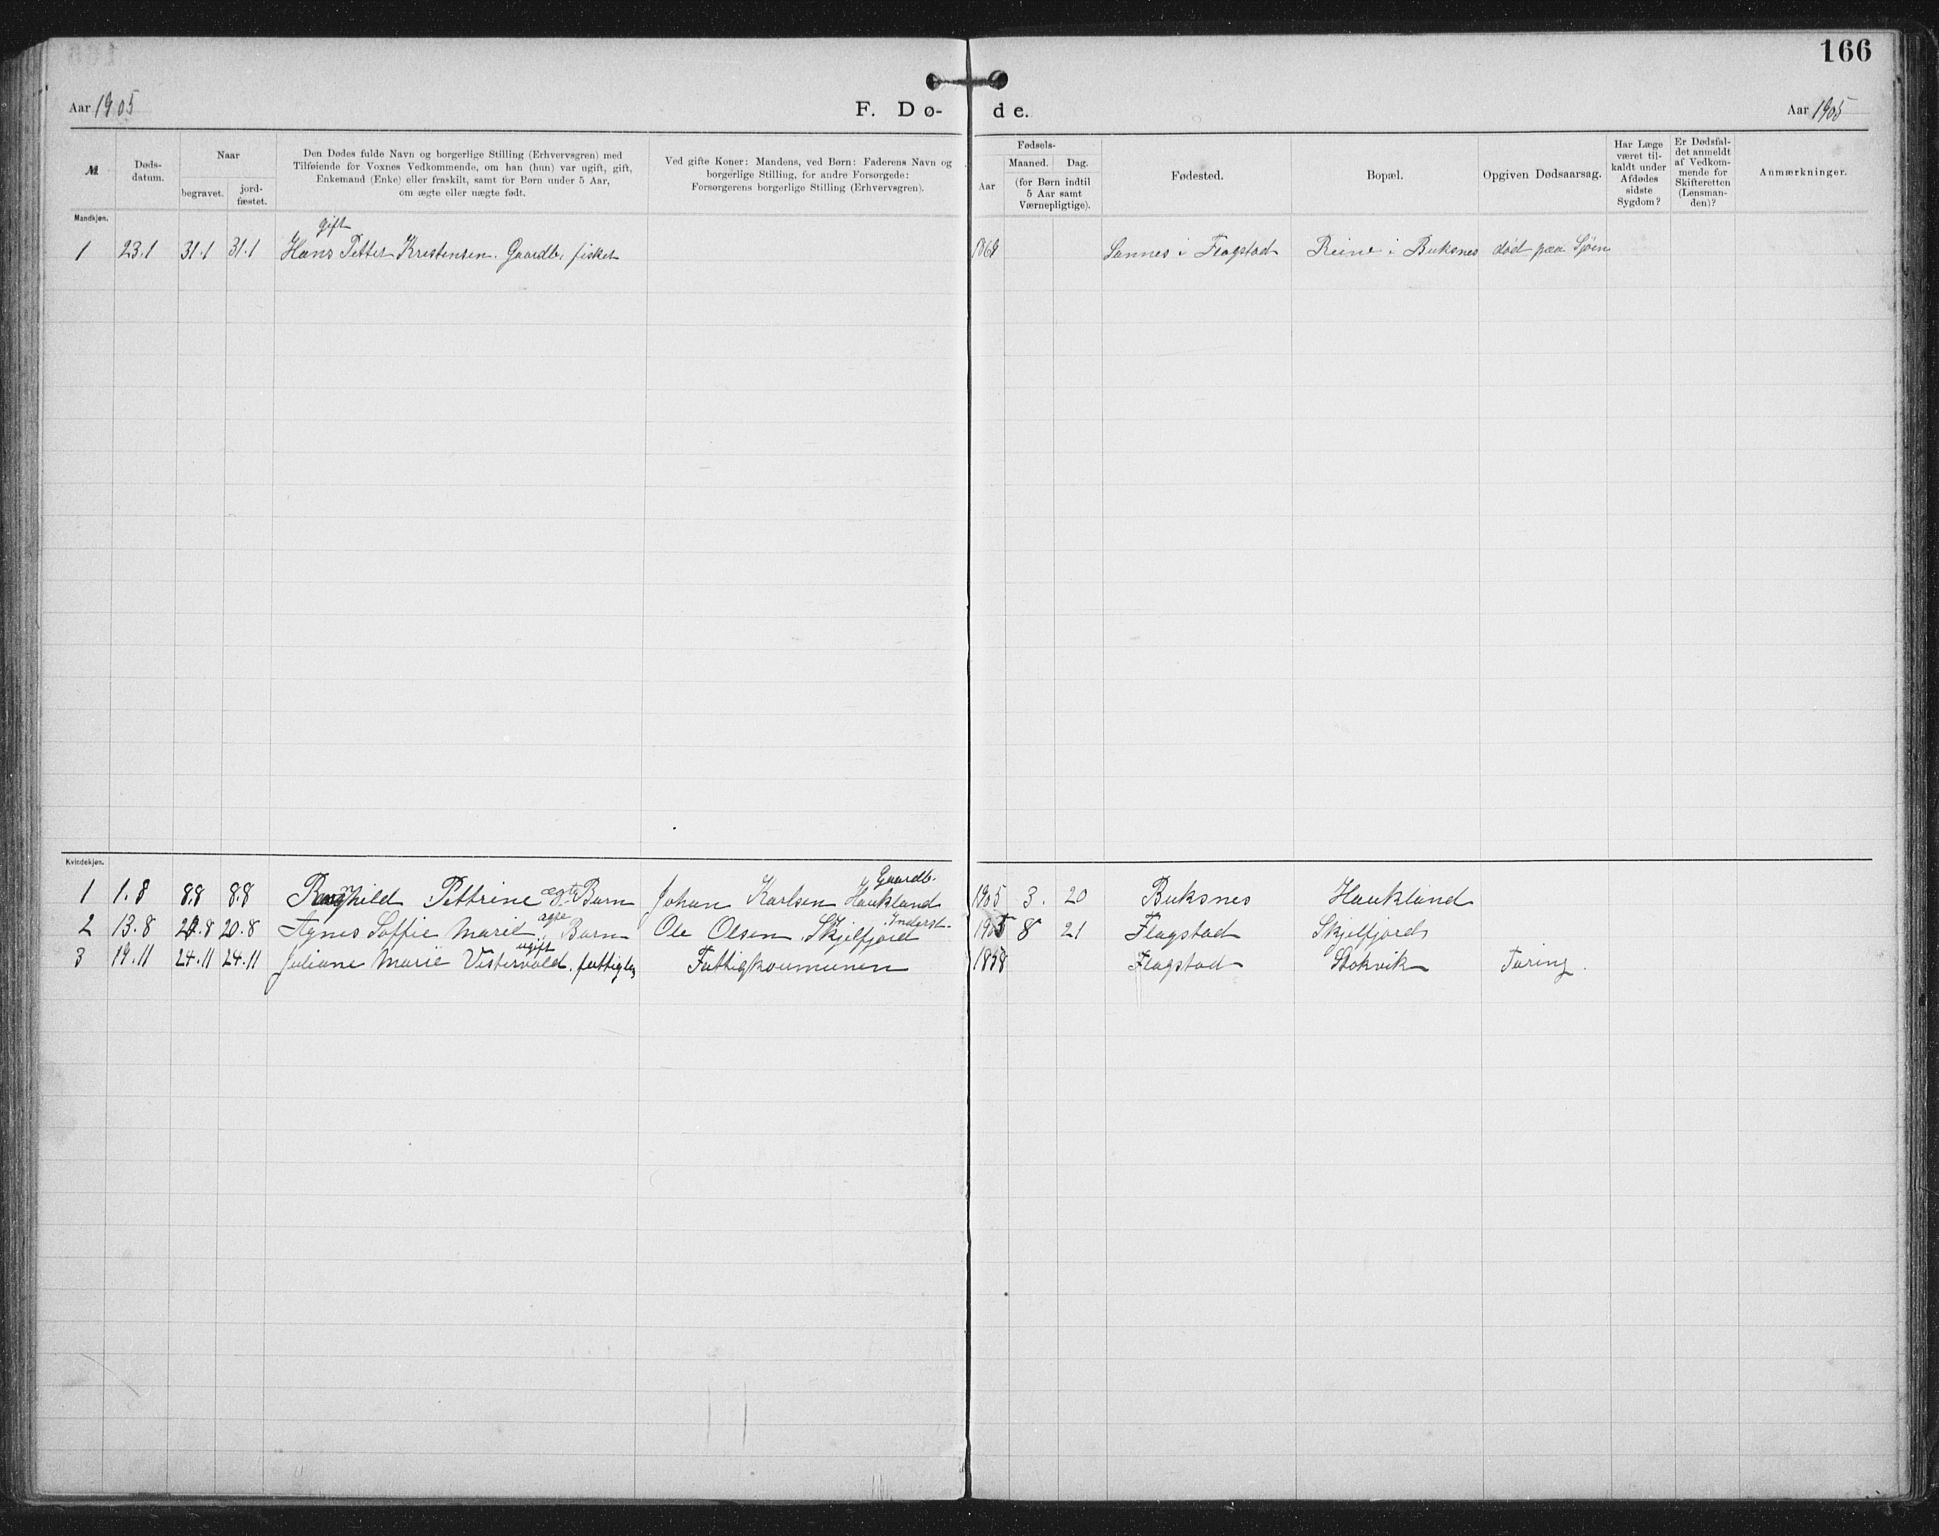 166
Aar 1905 F. Dø- de. Aar 1905
№ Døds-datum. Naar begravet. jord-fæstet. Den Dødes fulde Navn og borgerlige Stilling (Erhvervsgren) med Tilføiende for Voxnes Vedkommende, om han (hun) var ugift, gift, Enkemand (Enke) eller fraskilt, samt for Børn under 5 Aar, om ægte eller nægte født. Ved gifte Koner: Mandens, ved Børn: Faderens Navn og borgerlige Stilling, for andre Forsørgede: Forsørgerens borgerlige Stilling (Erhvervsgren). Fødsels- Aar Maaned. Dag. (for Børn indtil 5 Aar samt Værnepligtige). Fødested. Bopæl. Opgiven Dødsaarsag. Har Læge været til-kaldt under Afdødes sidste Sygdom? Er Dødsfal-det anmeldt af Vedkom-mende for Skifteretten (Lensman-den)? Anmærkninger.
Mandkjøn.
gift
1 23.1 31.1 31.1 Hans Petter Kristensen. Gaardb. fisker Sannes i Flagstad Reine i Buksnes død paa Sjøen
Kvindekjøn.
1 1.8 8.8 8.8 Ragnhild Pettrine ægte Barn Johan Karlsen Haukland Gaardb. 1905 3. 20 Buksnes Haukland
2 13.8 20.8 20.8 Agnes Soffie Marie ægte Barn Ole Olsen Skjelfjord Inderst. 8 21 Flagstad Skjelfjord
3 19.11 24.11 24.11 Juliane Marie Vistervold. ugift fattigl. Fattigkommunen Flagstad Stokvik Tæring.